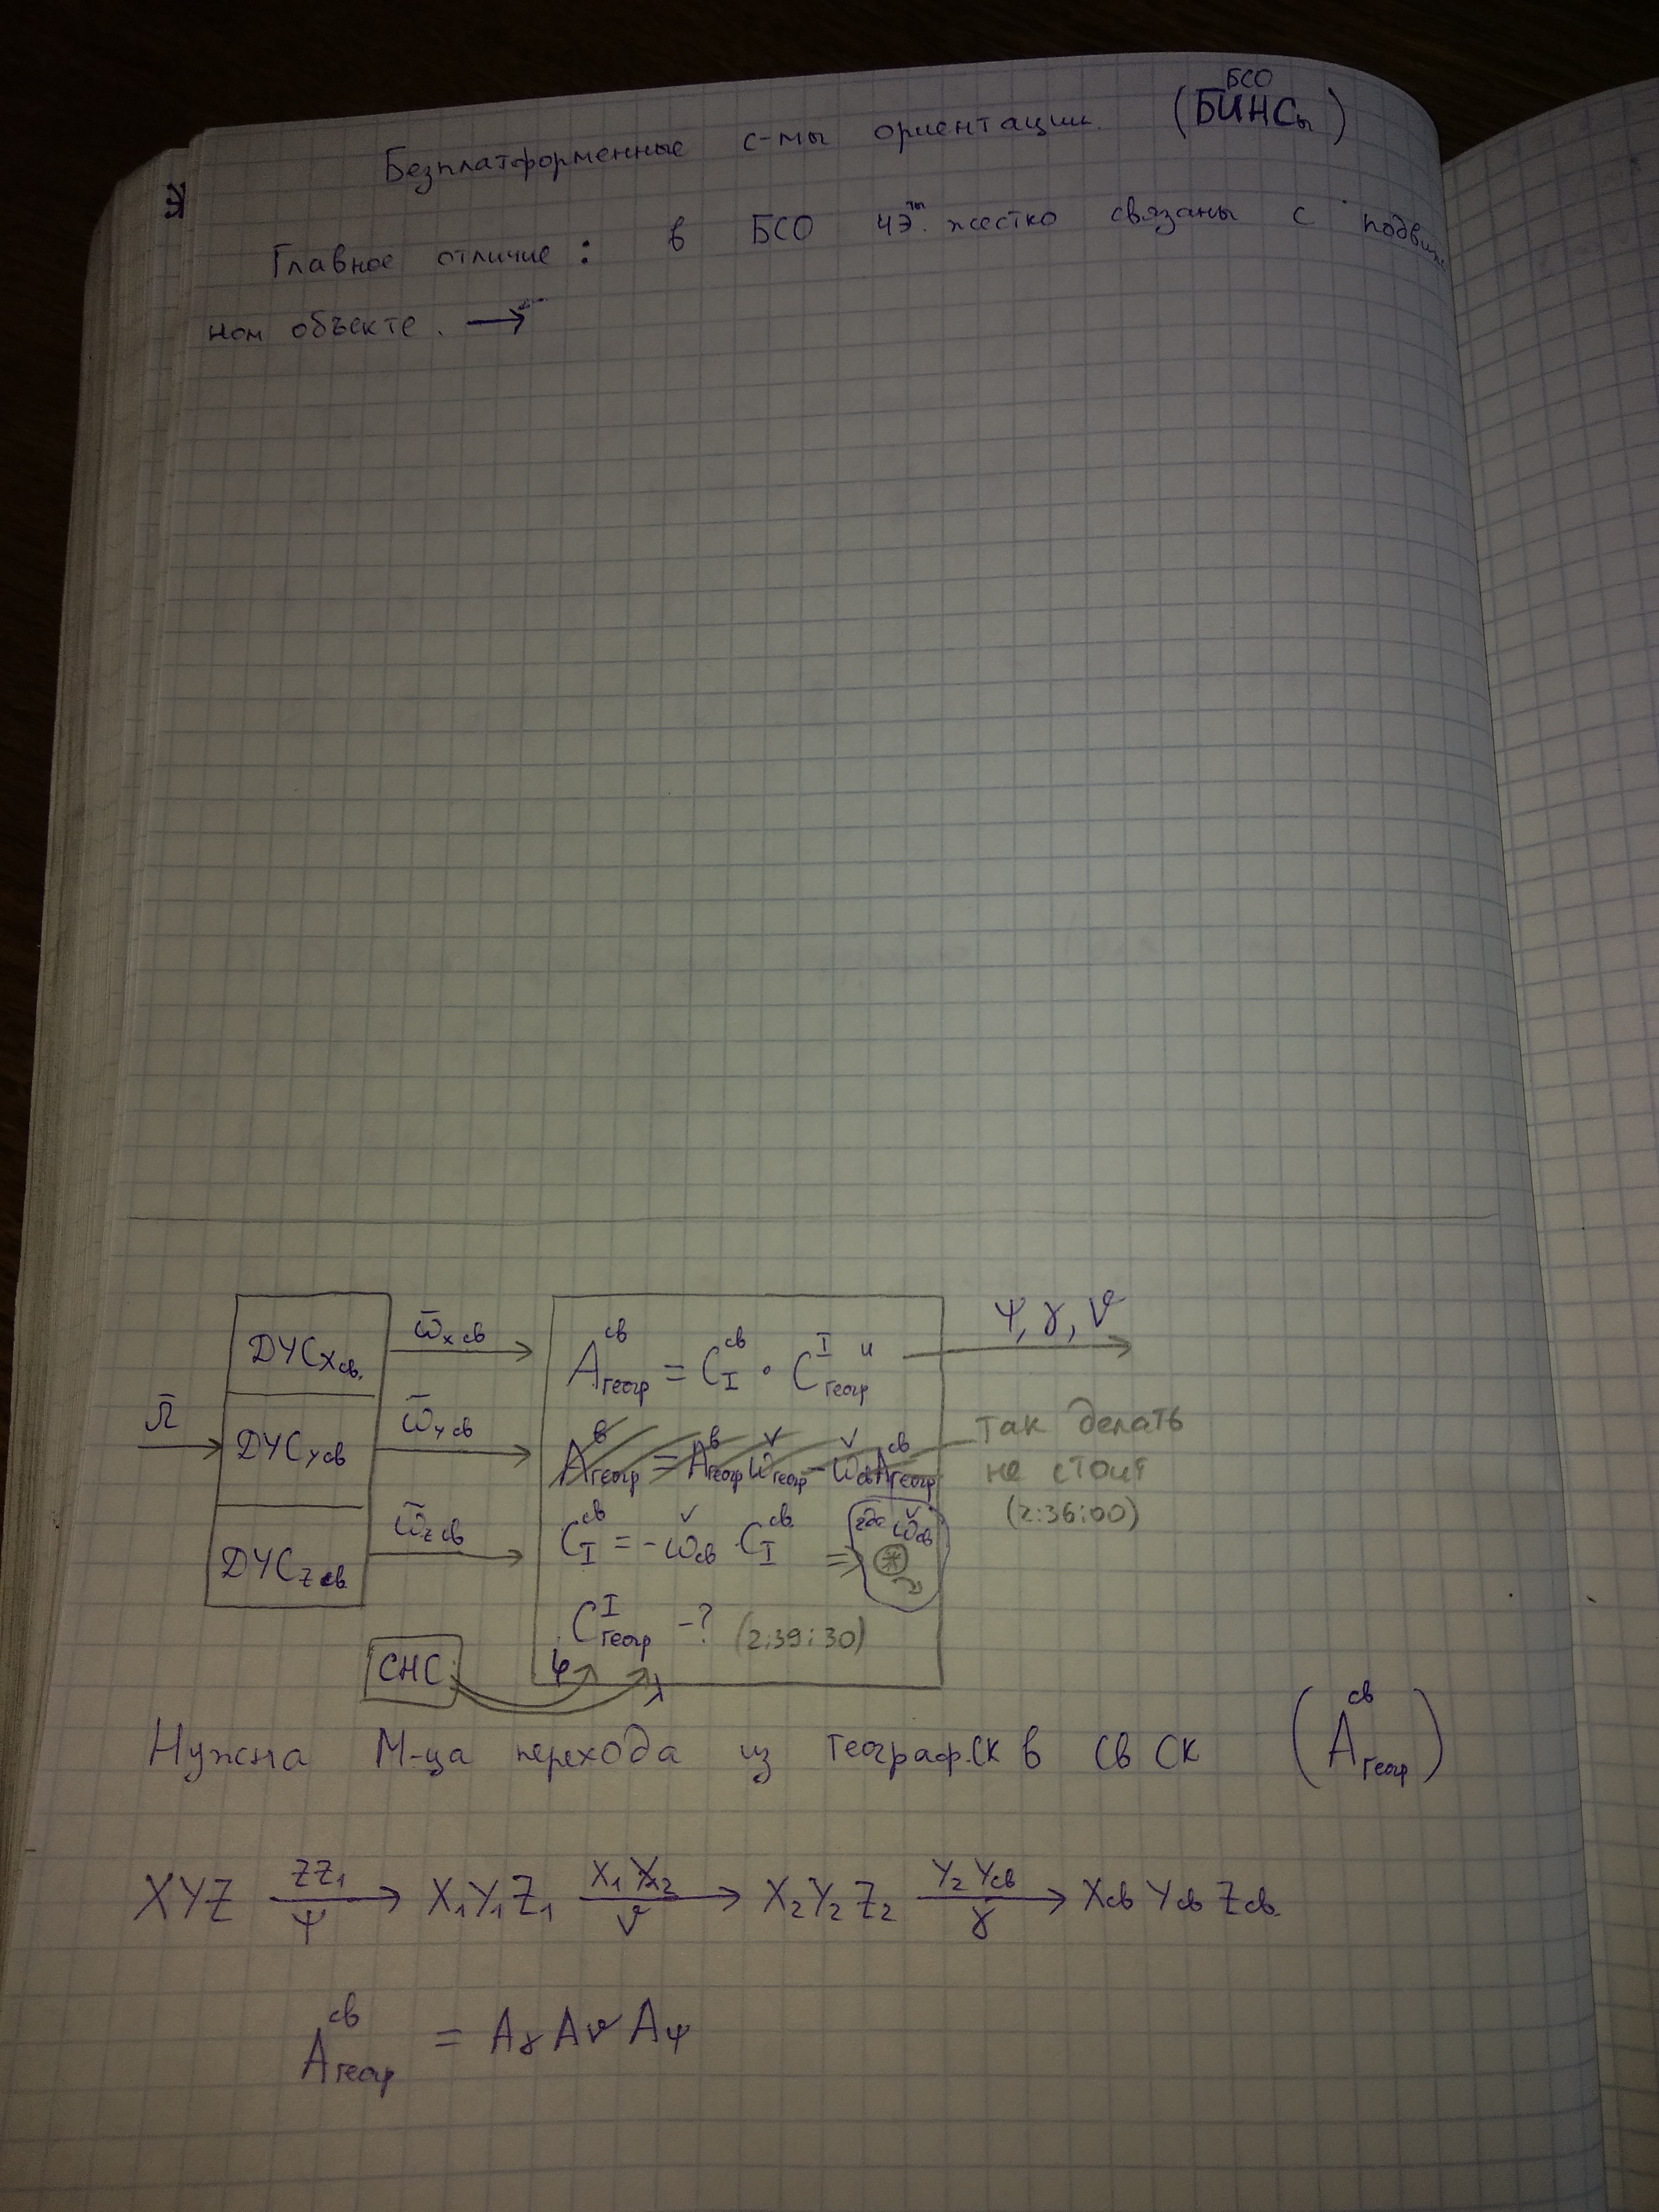 БСО
Безплатформенные с-мы ориентации. (БИНСы)
Главное отличие: в БСО ЧЭты. жестко связаны с подвиж
ном объекте. →
ДУСXсв. ω̄xсв
ДУСYсв ω̄yсв
ДУСZсв ω̄zсв
Ω̄
A^св_геогр = C^св_I · C^I_геогр и
ψ, γ, ϑ
A^в_геогр = A^в_геогр ω̌_геогр - ω̌_св A^св_геогр
так делать
не стоит
(2:36:00)
C^св_I = -ω̌_св · C^св_I ⇒ где ω̌_св
*
C^I_геогр -? (2:39:30)
СНС φ λ
Нужна М-ца перехода из географ.СК в Св СК (A^св_геогр)
XYZ —ZZ₁/ψ→ X₁Y₁Z₁ —X₁X₂/ϑ→ X₂Y₂Z₂ —Y₂Yсв/γ→ Xсв Yсв Zсв.
A^св_геогр = Aγ Aϑ Aψ